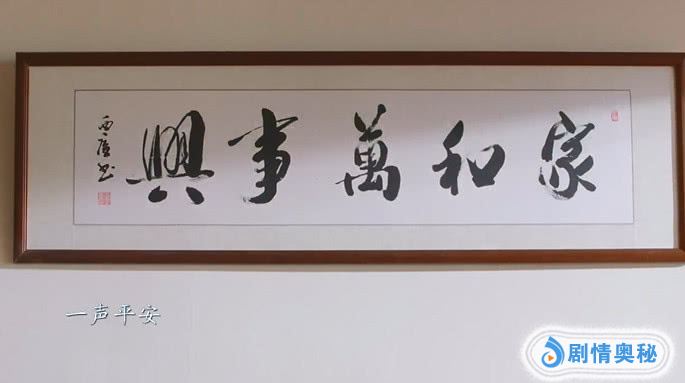 家和萬事興
一声平安
剧情奥秘